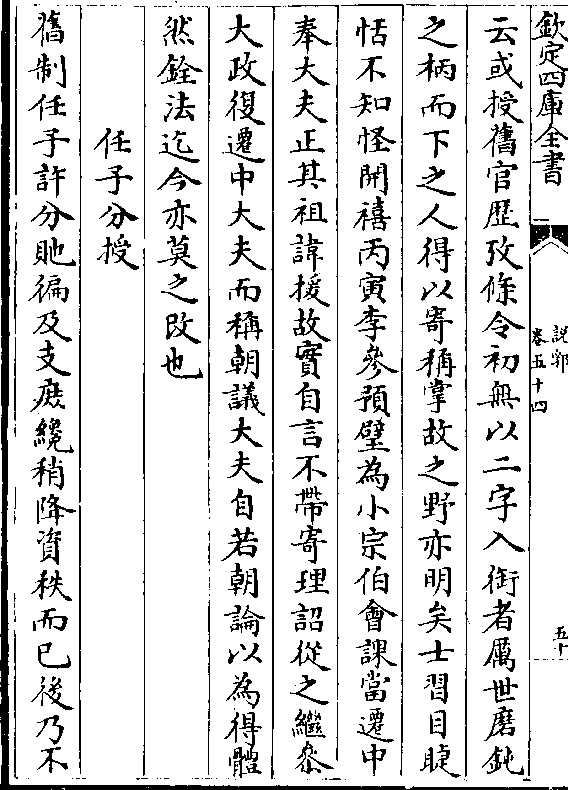 欽定四庫全書
說郛
卷五十四
五十
云或授舊官歷攷條令初無以二字入銜者厲世磨鈍
之柄而下之人得以寄稱掌故之野亦明矣士習目睫
恬不知怪開禧丙寅李參預壁為小宗伯會課當遷中
奉大夫正其祖諱援故實自言不帶寄理詔從之繼叅
大政復遷中大夫而稱朝議大夫自若朝論以為得體
然銓法迄今亦莫之改也
任子分授
舊制任子許分貤徧及支庶纔稍降資秩而已後乃不